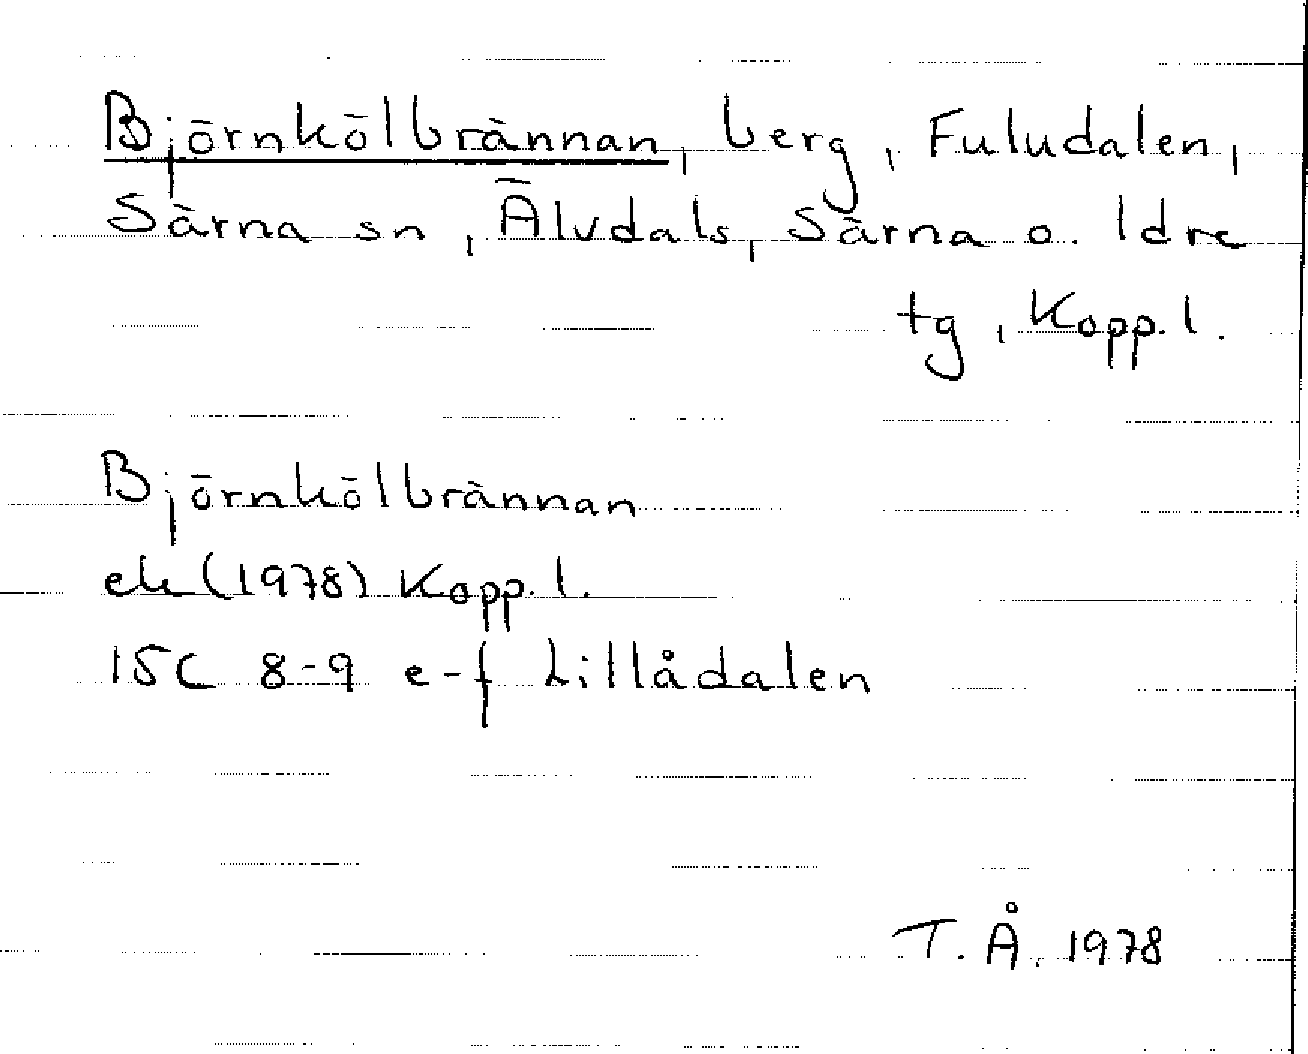 Björnkölbrännan, berg, Fuludalen,
Särna sn, Älvdals, Särna o. Idre
tg, Kopp. l.
Björnkölbrännan
ek (1978) Kopp. l.
15C 8-9 e-f Lillådalen
T. Å. 1978